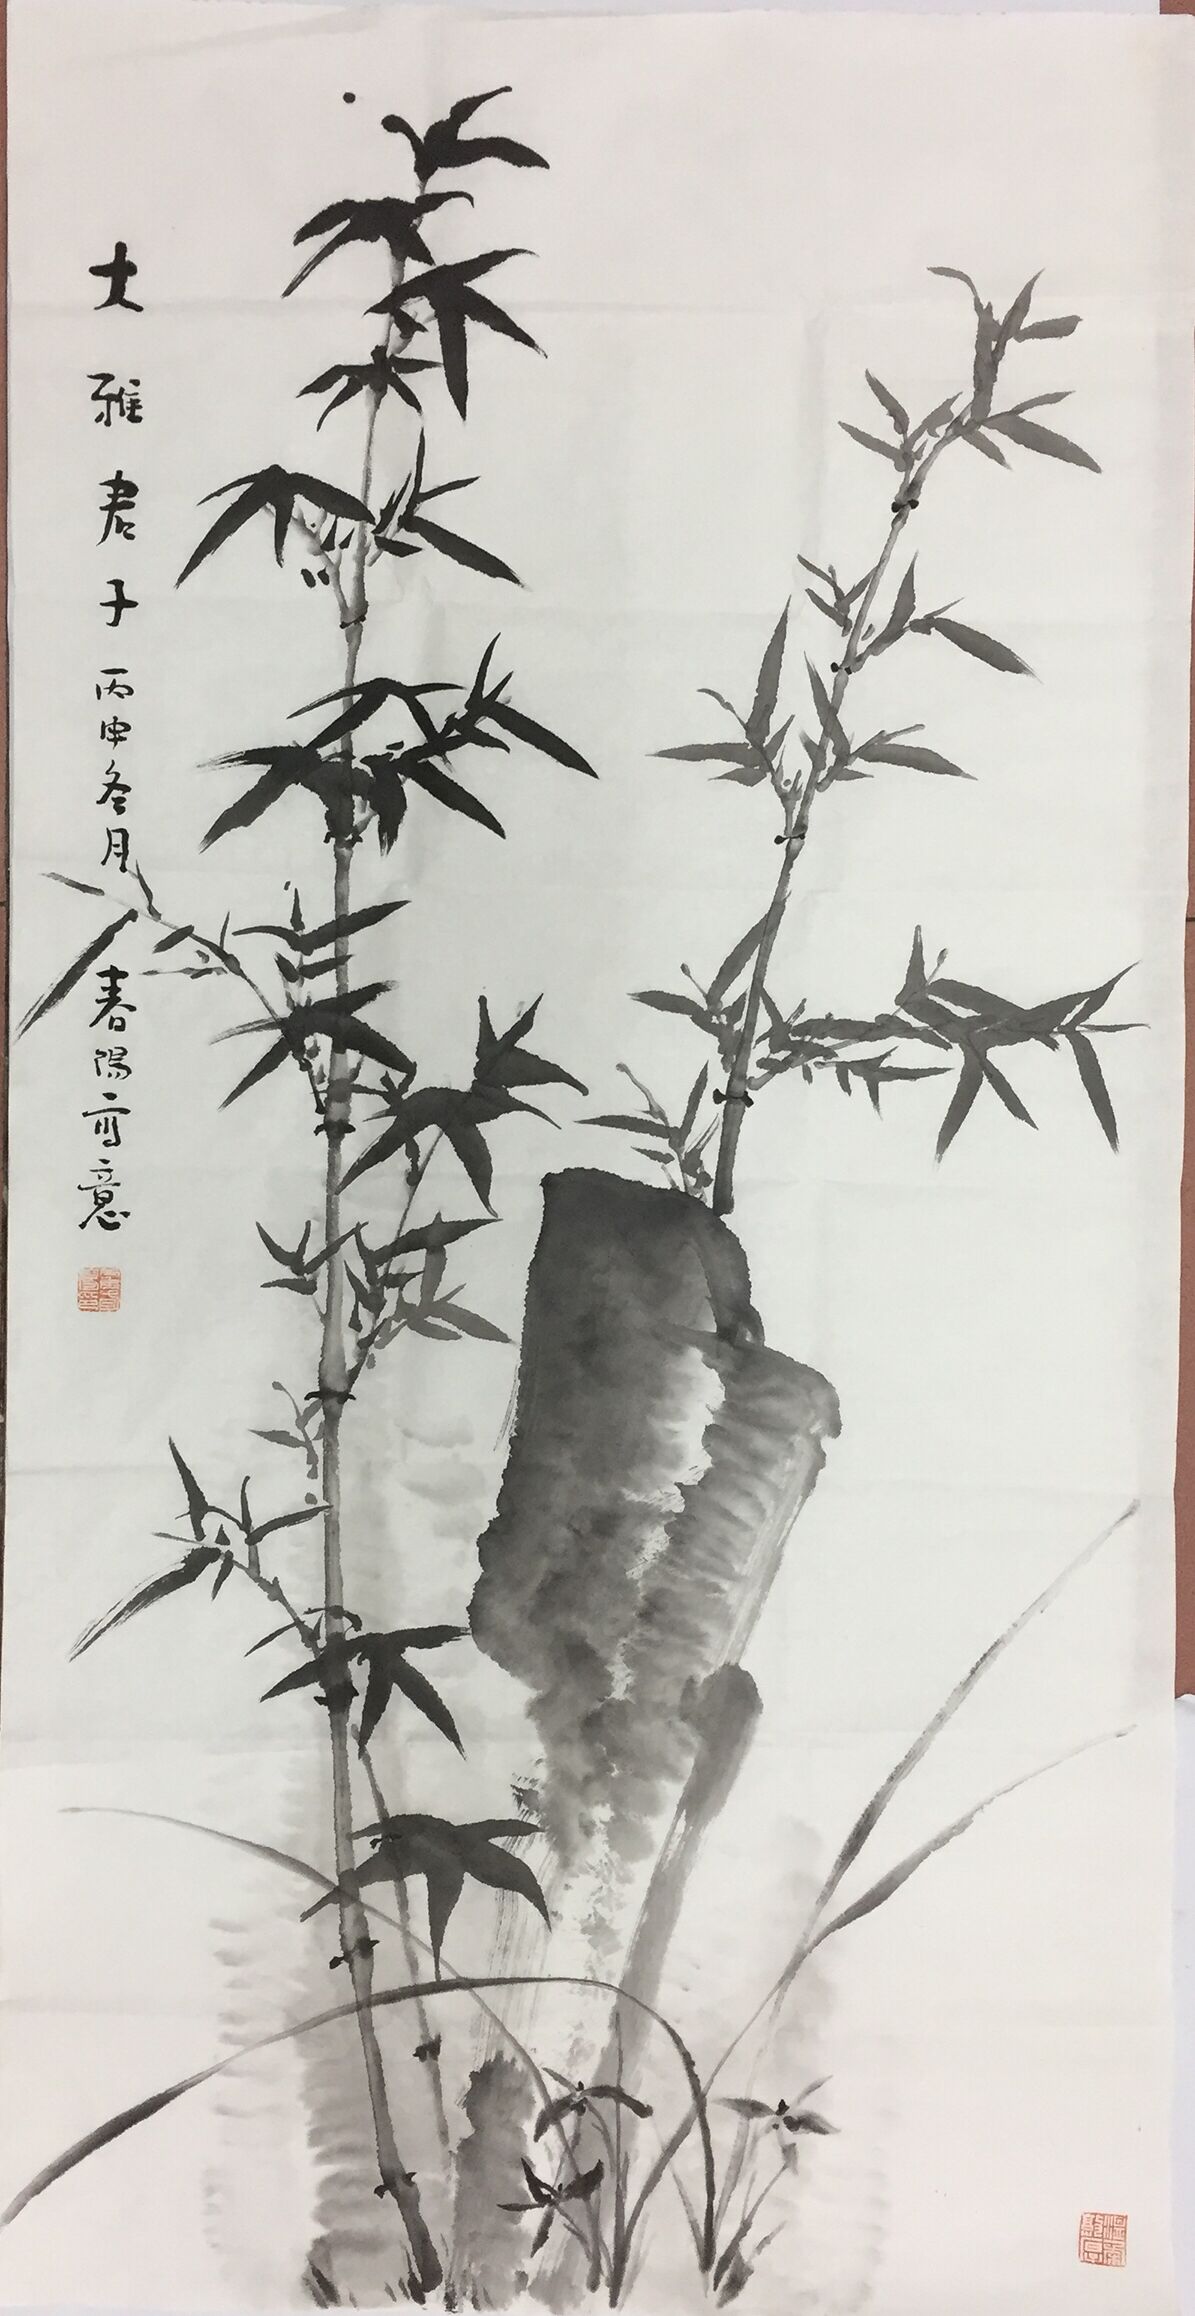 大雅君子丙申冬月
春阳写意